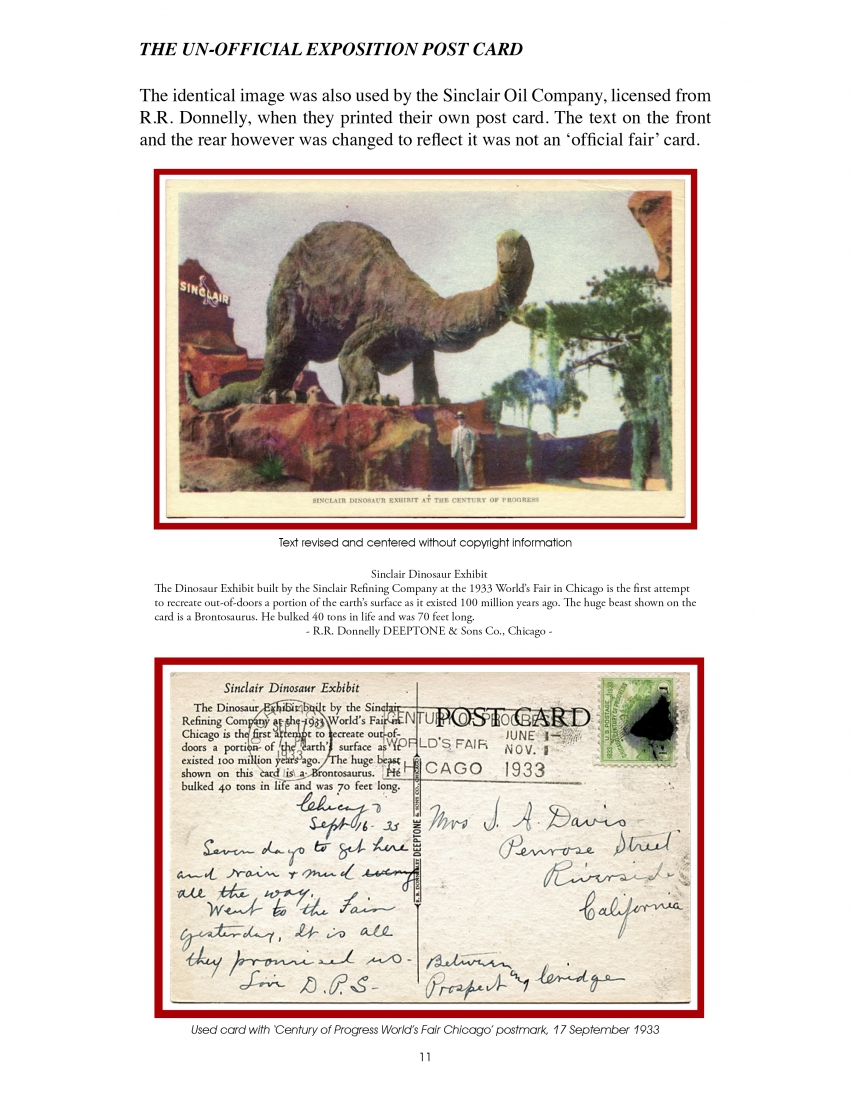 THE UN-OFFICIAL EXPOSITION POST CARD
The identical image was also used by the Sinclair Oil Company, licensed from
R.R. Donnelly, when they printed their own post card. The text on the front
and the rear however was changed to reflect it was not an ‘official fair’ card.
SINCLAIR
SINCLAIR DINOSAUR EXHIBIT AT THE CENTURY OF PROGRESS
Text revised and centered without copyright information
Sinclair Dinosaur Exhibit
The Dinosaur Exhibit built by the Sinclair Refining Company at the 1933 World’s Fair in Chicago is the first attempt
to recreate out-of-doors a portion of the earth’s surface as it existed 100 million years ago. The huge beast shown on the
card is a Brontosaurus. He bulked 40 tons in life and was 70 feet long.
- R.R. Donnelly DEEPTONE & Sons Co., Chicago -
Sinclair Dinosaur Exhibit
The Dinosaur Exhibit built by the Sinclair
Refining Company at the 1933 World's Fair in
Chicago is the first attempt to recreate out-of-
doors a portion of the earth's surface as it
existed 100 million years ago. The huge beast
shown on this card is a Brontosaurus. He
bulked 40 tons in life and was 70 feet long.
POST CARD
CENTURY OF PROGRESS
WORLD'S FAIR
CHICAGO
JUNE 1-
NOV. 1
1933
SEP 17
1933
Chicago
Sept 16-33
Seven days to get here
and rain + mud every
all the way.
Went to the Fair
yesterday, It is all
they promised us-
Love D.P.S-
DEEPTONE
Mrs S. A. Davis
Penrose Street
Riverside
California
Between
Prospect and Cridge
Used card with ‘Century of Progress World’s Fair Chicago’ postmark, 17 September 1933
11